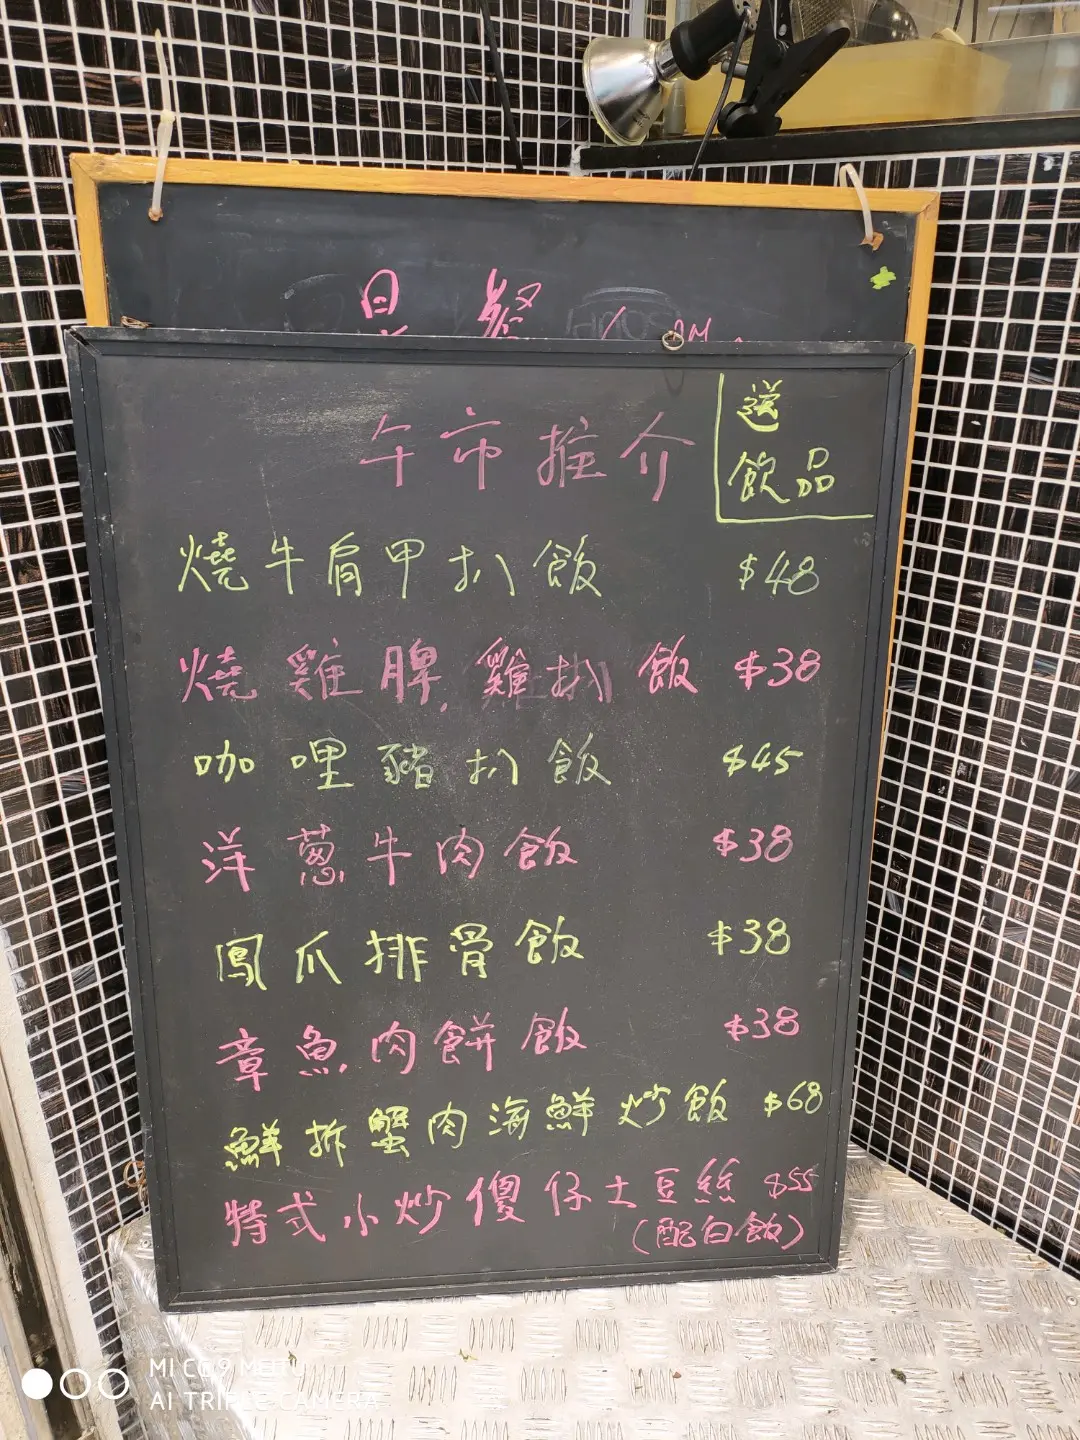 早餐
午市推介
送
飲品
燒牛肩甲扒飯 $48
燒雞脾.雞扒飯 $38
咖哩豬扒飯 $45
洋葱牛肉飯 $38
鳳爪排骨飯 $38
章魚肉餅飯 $38
鮮拆蟹肉海鮮炒飯 $68
特式小炒傻仔土豆絲 $55
(配白飯)
MI CC9 MEITU
AI TRIPLE CAMERA